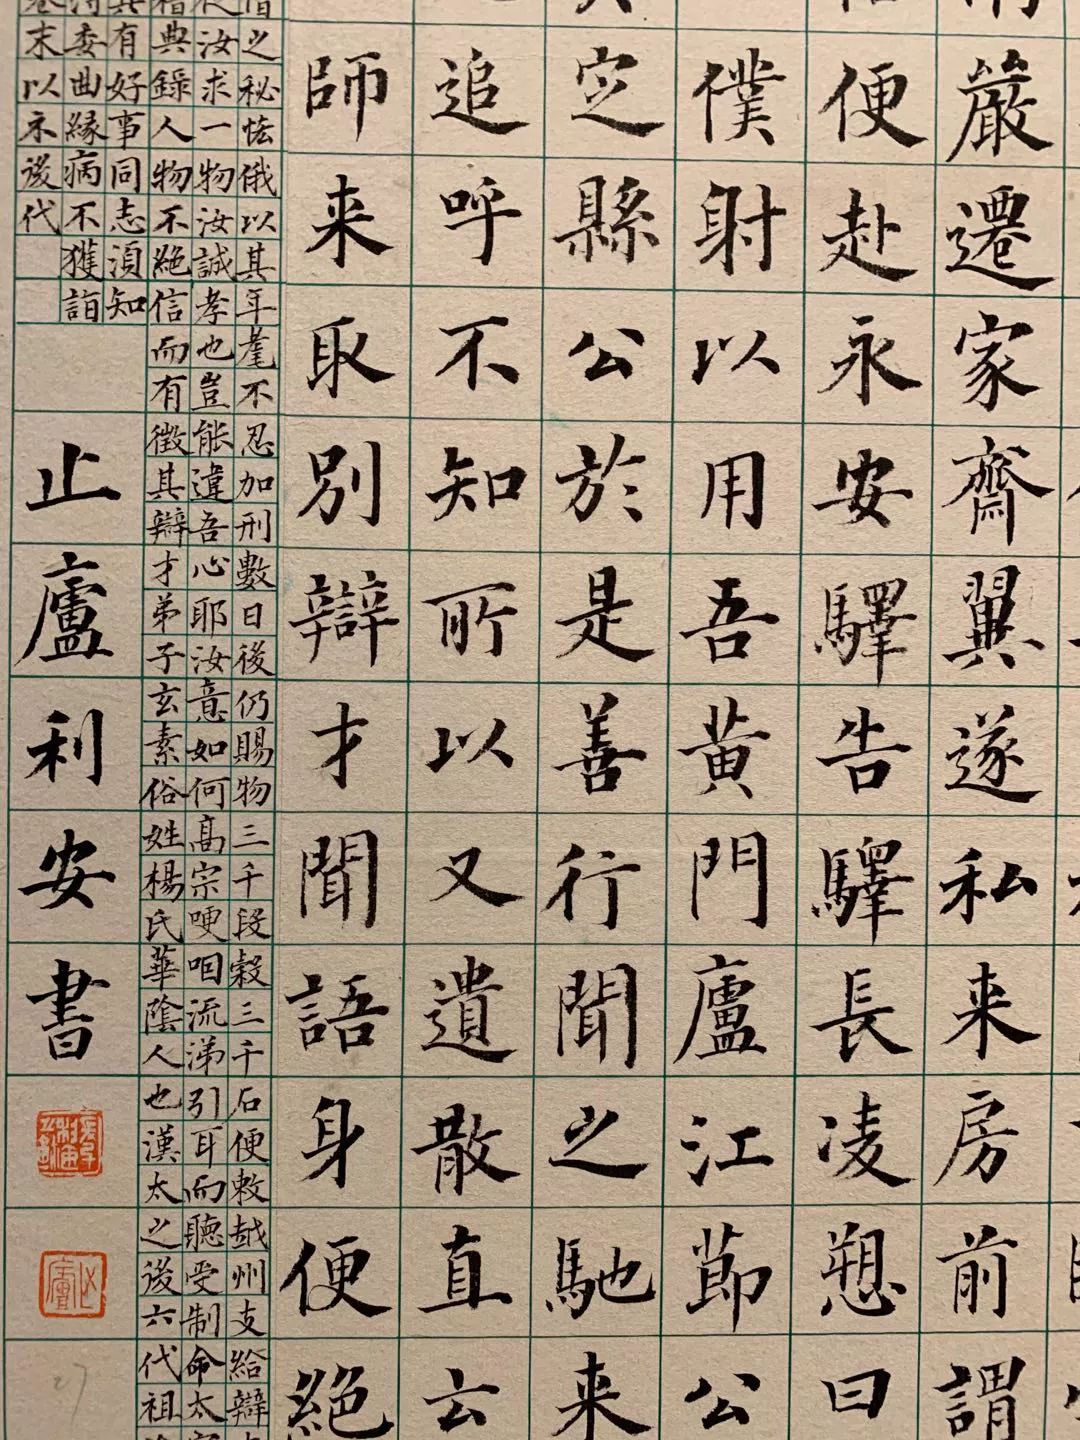 嚴遷家齋翼遂私来房前謂
便赴永安驛告驛長凌愬曰
僕射以用吾黄門廬江節公
定縣公於是善行聞之馳来
追呼不知所以又遺散直云
師来取别辯才聞語身便絶
之秘恡俄以其年耄不忍加刑數日後仍賜物三千段榖三千石便敕越州支給
汝求一物汝誠孝也豈能違吾心耶汝意如何高宗哽咽流涕引耳而聽受制命太
典錄人物不絶信而有徵其辯才弟子玄素俗姓楊氏華陰人也漢太之後六代祖
有好事同志須知
委曲緣病不獲詣
末以示後代
止廬利安書